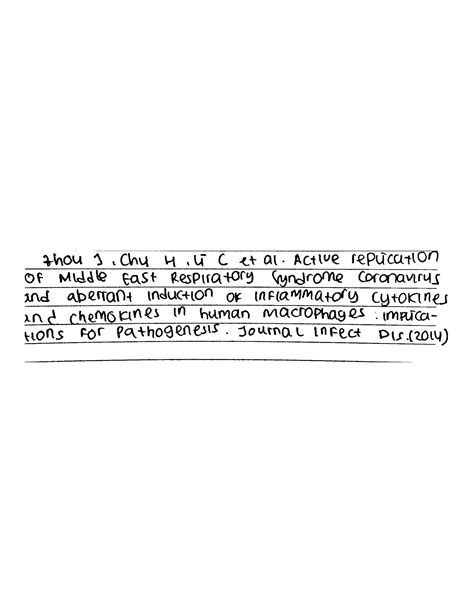 Zhou J, Chu H, Li C et al. Active replication
of Middle East Respiratory Syndrome Coronavirus
and aberrant induction of inflammatory cytokines
and chemokines in human macrophages : implica-
tions for pathogenesis. Journal Infect Dis.(2014)